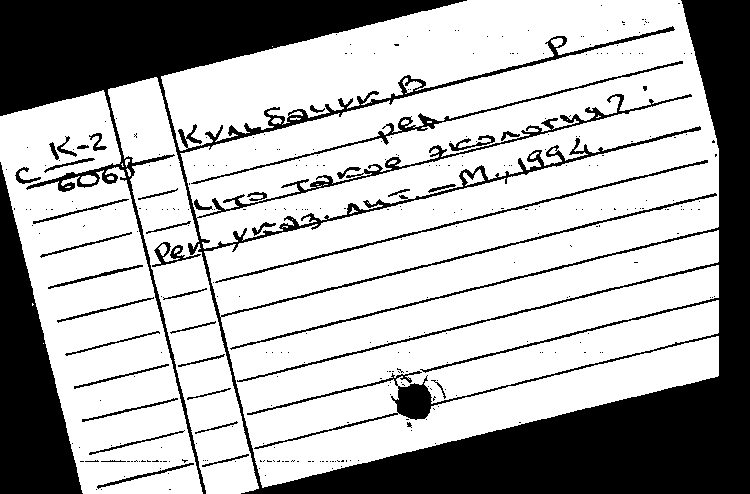 Р
Кульбачук, В
С К-2
6069
ред.
Что такое экология? :
Рек. указ. лит. — М., 1994.